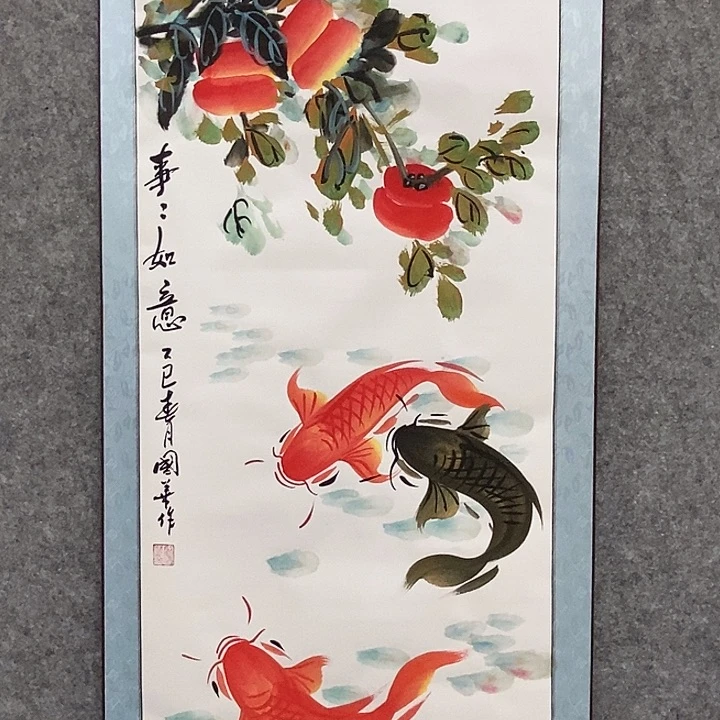 事〻如意乙巳春月國華作